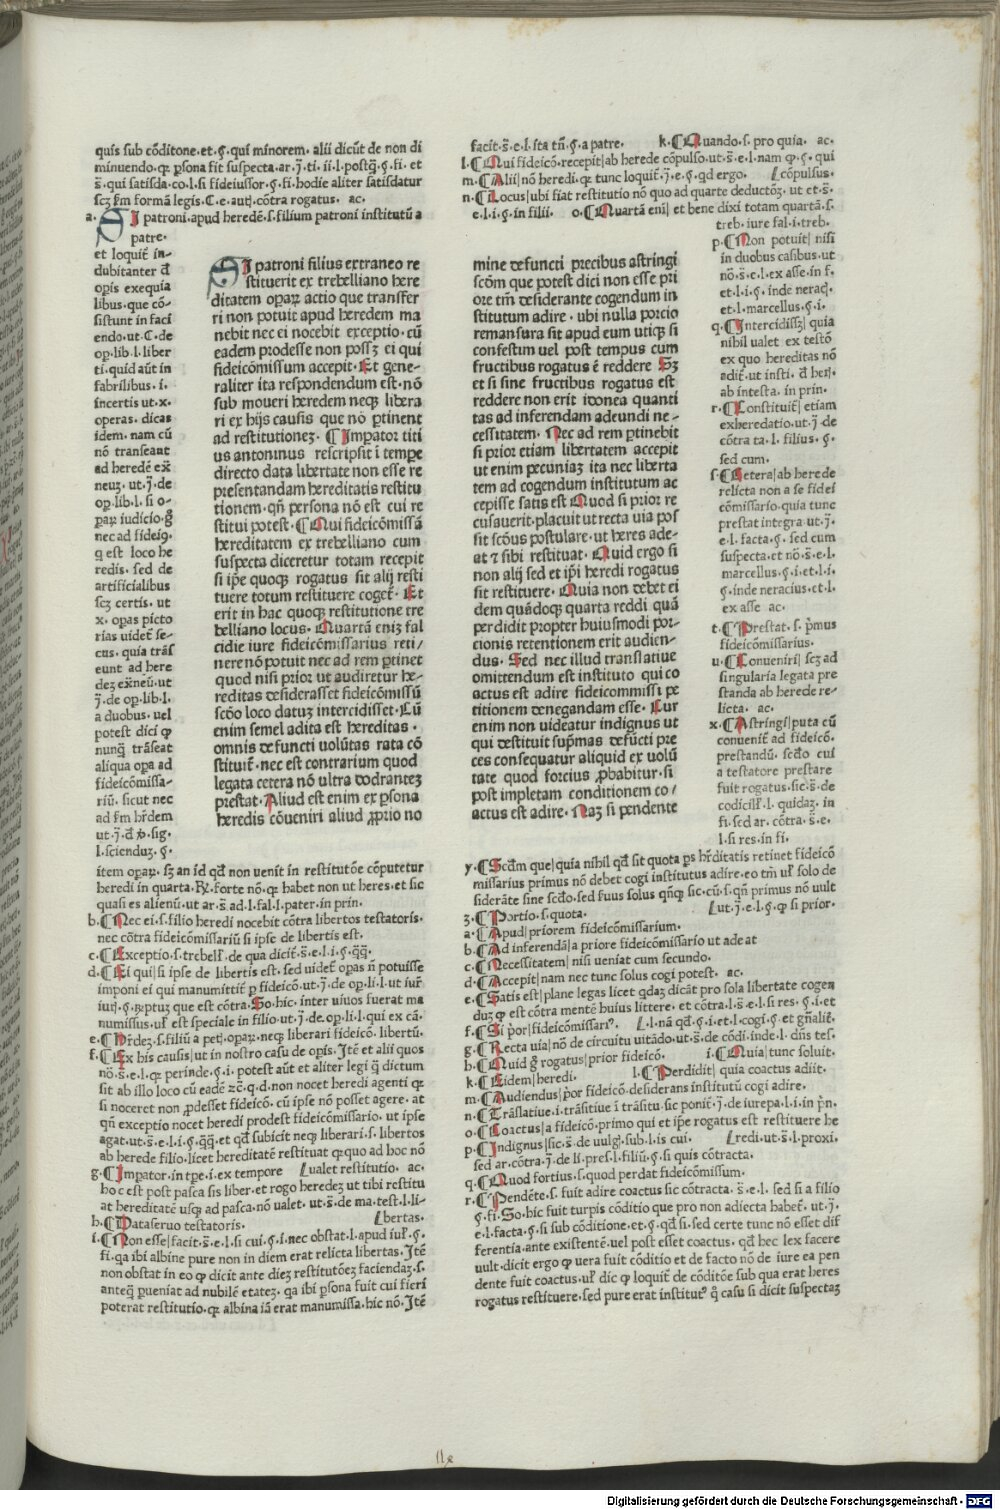 quis sub cōditione·et·ꝙ·qui minorem· alii dicūt de non di
minuendo·qꝛ ꝑsona fit suspecta·ar·j̄·ti·ii·l·postq̄·ꝙ·fi· et
s̄·qui satisda·co·l·si fideiussor·ꝙ·fi·hodie aliter satisdatur
scꝫ ẜm formā legis·C·e·autj·cōtra rogatus· ac·
a· SI patroni·apud heredē·s·filium patroni institutū a
patre·
et loquit̄ in-
dubitanter đ
opis exequia
libus·que cō-
sistunt in faci
endo·ut·C·de
op·lib·l·liber
ti·quid aūt in
fabrilibus·i·
incertis ut·x·
operas· dicas
idem·nam cū
nō transeant
ad heredē ex̄
neuꝫ·ut·j̄·de
op·lib·l·si o-
ꝑaꝝ iudicio·ḡ
nec ad fideiꝯ·
q est loco he
redis· sed de
artificialibus
scꝫ certis· ut
x· opas picto
rias uidet̄ se-
cus· quia trās
eunt ad here
deꝫ ex̄neū·ut
j̄·de op·lib·l·
a duobus· uel
potest dici ꝙ
nunq̄ trāseat
aliqua oꝑa ad
fideicōmissa-
riū· sicut nec
ad ẜm hr̄dem
ut·j̄·đ ꝟ·sig·
l·sciendus·ꝙ·
SI patroni filius extraneo re
stituerit ex trebelliano here
ditatem opaꝝ actio que transfer
ri non potuit apud heredem ma
nebit nec ei nocebit exceptio· cū
eadem prodesse non possꝫ ei qui
fideicōmissum accepit· Et gene-
raliter ita respondendum est·nō
sub moueri heredem neqꝫ libera
ri ex hijs causis que nō ꝑtinent
ad restitutioneꝫ· ¶ Imꝑator titi
us antoninus rescripsit i tempe
directo data libertate non esse re
presentandam hereditatis restitu
tionem·qn̄ persona nō est cui re
stitui potest·¶ Qui fideicōmissā
hereditatem ex trebelliano cum
suspecta diceretur totam recepit
si ip̄e quoqꝫ rogatus sit alij resti
tuere totum restituere coget̄· Et
erit in hac quoqꝫ restitutione tre
belliano locus· Quartā eniꝫ fal
cidie iure fideicōmissarius reti/
nere nō potuit nec ad rem ꝑtinet
quod nisi prior ut audiretur he-
reditas desiderasset fideicōmissū
scd̄o loco datuꝫ intercidisset· Cū
enim semel adita est hereditas ·
omnis defuncti uolūtas rata cō
stituit̄·nec est contrarium quod
legata cetera nō ultra dodranteꝫ
prestat·Aliud est enim ex ꝑsona
heredis cōueniri aliud ꝓprio no
item opaꝝ· sꝫ an id qđ non uenit in restitutōe cōputetur
heredi in quarta·R̄·forte nō·qꝛ habet non ut heres·et sic
quasi es alienū·ut ar·s̄·ad·l·fal·l·pater·in prin·
b·¶Nec ei·s·filio heredi nocebit cōtra libertos testatoris·
nec cōtra fideicōmissariū si ipse de libertis est·
c·¶Exceptio·s·trebell̄·de qua dicit̄·s̄·e·l·i·ꝙ·q̄q̄·
d·¶Ei qui|si ipse de libertis est·sed uidet̄ oꝑas n̄ potuisse
imponi ei qui manumittit̄ ꝑ fideicō·ut·j̄·de op·li·l·ut iur̄
iur̄·ꝙ·rꝑtuꝫ que est cōtra·So·hic·inter uiuos fuerat ma
numissus·ul̄ est speciale in filio·ut·j̄·de·op·li·l·qui ex cā·
e·¶Hr̄deꝫ·s·filiū a pet̄·opaꝝ·neqꝫ liberari fideicō·libertū·
f·¶Ex his causis|ut in nostro casu de opis·Itē et alii quos
nō·s̄·e·l·qꝛ perinde·ꝙ·i·potest aūt et aliter legi q̄ dictum
sit ab illo loco cū eadē ꝛc̄·q·d·non nocet heredi agenti qꝛ
si noceret non ꝓdesset fideicō·cū ipse nō posset agere· at
qn̄ exceptio nocet heredi prodest fideicōmissario·ut ipse
agat·ut·s̄·e·l·i·ꝙ·q̄q̄·et qđ subicit neqꝫ liberari·s·libertos
ab herede filio·licet hereditatē restituat qꝛ quo ad hoc nō
g·¶Imꝑator·in tꝑe·i·ex tempore [ualet restitutio· ac·
hoc est post pasca sis liber·et rogo heredeꝫ ut tibi restitu
at hereditatē usqꝫ ad pasca·nō ualet·ut·s̄·de ma·test·l·li-
h·¶Pataseruo testatoris· [bertas·
i·¶Non esse|facit·s̄·e·l·si cui·ꝙ·i·nec obstat·l·apud iul̄·ꝙ·
fi·qa ibi albine pure non in diem erat relicta libertas·Itē
non obstat in eo ꝙ dicit ante dieꝫ restitutōeꝫ faciendaꝫ·s·
anteq̄ ꝑueniat ad nubilē etateꝫ·qa ibi ꝑsona fuit cui fieri
poterat restitutio·qꝛ albina iā erat manumissa·hic nō·Itē
facit·s̄·e·l·ita tn̄·ꝙ·a patre· k·¶Quando·s·pro quia· ac·
l·¶Qui fideicō·recepit|ab herede cōpulso·ut·s̄·e·l·nam ꝙ·ꝙ·qui
m·¶Alii|nō heredi·qꝛ tunc loquit̄·j̄·e·ꝙ·qđ ergo· [cōpulsus·
n·¶Locus|ubi fiat restitutio nō quo ad quarte deductōꝫ·ut et·s̄·
e·l·i·ꝙ·in filii· o·¶Quartā eni| et bene dixi totam quartā·s·
treb·iure fal·i·treb·
p·¶Non potuit| nisi
in duobus casibus·ut
nō·s̄·e·l·ex asse·in f·
et·l·i·ꝙ· inde neraꝯ·
et·l·marcellus·ꝙ·i·
q·¶Intercidissꝫ| quia
nihil ualet ex testō
ex quo hereditas nō
adit̄·ut insti· đ herj·
ab intesta· in prin·
r·¶Constituit̄| etiam
exheredatio·ut·j̄·de
cōtra ta·l·filius·ꝙ·
sed cum·
s·¶Cetera|ab herede
relicta non a se fidei
cōmissario·quia tunc
prestat integra·ut·j̄·
e·l·facta·ꝙ·sed cum
suspecta·et nō·s̄·e·l·
marcellus·ꝙ·i·et·l·i·
ꝙ·inde neracius·et·l·
ex asse ac·
t·¶Prestat·s·p̄mus
fideicōmissarius·
u·¶Conueniri| scꝫ ad
singularia legata pre
standa ab herede re-
licta· ac·
x·¶Astringi|puta cū
conuenit̄ ad fideicō·
prestandū· scd̄o cui
a testatore prestare
fuit rogatus·sic·s̄·de
codicill̄·l·quidaꝫ·in
fi·sed ar·cōtra·s̄·e·
l·si res·in fi·
mine defuncti precibus astringi
scd̄m que potest dici non esse pri
ore tm̄ desiderante cogendum in
stitutum adire · ubi nulla porcio
remansura sit apud eum utiqꝫ si
confestim uel post tempus cum
fructibus rogatus ē reddere Sꝫ
et si sine fructibus rogatus est
reddere non erit idonea quanti
tas ad inferendam adeundi ne-
cessitatem· Nec ad rem ꝑtinebit
si prior etiam libertatem accepit
ut enim pecuniaꝫ ita nec liberta
tem ad cogendum institutum ac
cepisse satis est Quod si prior re
cusauerit·placuit ut recta uia pos
sit scd̄us postulare·ut heres ade-
at ⁊ sibi restituat· Quid ergo si
non alij sed et ip̄i heredi rogatus
sit restituere· Quia non debet ei
dem quādoqꝫ quarta reddi quā
perdidit propter huiusmodi por-
cionis retentionem erit audien-
dus· Sed nec illud translatiue
omittendum est instituto qui co
actus est adire fideicommissi pe
titionem denegandam esse· Cur
enim non uideatur indignus ut
qui destituit sup̄mas defūcti pre
ces consequatur aliquid ex uolū
tate quod forcius ꝓbabitur·si
post impletam conditionem co/
actus est adire· Naꝫ si pendente
y·¶Scd̄m que|quia nihil qđ sit quota ꝑs hr̄ditatis retinet fideicō
missarius primus nō debet cogi institutus adire·eo tm̄ ul̄ solo de
siderāte sine scd̄o·sed suus solus qn̄qꝫ sic·cū·s·qn̄ primus nō uult
z·¶Portio·s·quota· [ut·j̄·e·l·ꝙ·ꝙ si prior·
a·¶Apud|priorem fideicōmissarium·
b·¶Ad inferendā|a priore fideicōmissario ut adeat
c·¶Necessitatem| nisi ueniat cum secundo·
d·¶Accepit|nam nec tunc solus cogi potest· ac·
e·¶Satis est|plane legas licet qdaꝫ dicāt pro sola libertate cogen
duꝫ ꝙ est cōtra mentē huius littere·et cōtra·l·s̄·e·l·si res·ꝙ·i·et
f·¶Si p̄or|fideicōmissari⁹· [·l·nā qđ·ꝙ·i·et·l·cogi·ꝙ·et gn̄alit̄·
g·¶Recta uia|nō de circuitu uitādo·ut·s̄·de cōdi·inde·l·dn̄s tes·
h·¶Quid ḡ rogatus|prior fideicō· i·¶Quia|tunc soluit·
k·¶Eidem|heredi· l·¶Perdidit| quia coactus adiit·
m·¶Audiendus|p̄or fideicō·desiderans institutū cogi adire·
n·¶Trāslatiue·i·trāsitiue i trāsitu·sic ponit̄·j̄·de iurepa·l·i·in p̄n·
o·¶Coactus|a fideicō·primo qui et ip̄e rogatus est restituere he
p·¶Indignus|sic·s̄·de uulg̓·sub·l·is cui· [redi·ut·s̄·l·proxi·
sed ar·cōtra·j̄·de li·pres·l·filiū·ꝙ·si quis cōtracta·
q·¶Quod fortius·s·quod perdat fideicōmissum·
r·¶Pendēte·s·fuit adire coactus sic cōtracta· s̄·e·l· sed si a filio
ꝙ·fi·So·hic fuit turpis cōditio que pro non adiecta habet̄· ut·j̄·
e·l·facta·ꝙ·si sub cōditione·et·ꝙ·qđ si·sed certe tunc nō esset dif
ferentia·ante existentē·uel post esset coactus· qđ hec lex facere
uult·dicit ergo ꝙ uera fuit cōditio et de facto nō de iure ea pen
dente fuit coactus·ul̄ dic ꝙ loquit̄ de cōditōe sub qua erat heres
rogatus restituere·sed pure erat institut⁹ q̄ casu si dicit suspectaꝫ
Digitalisierung gefördert durch die Deutsche Forschungsgemeinschaft - DFG